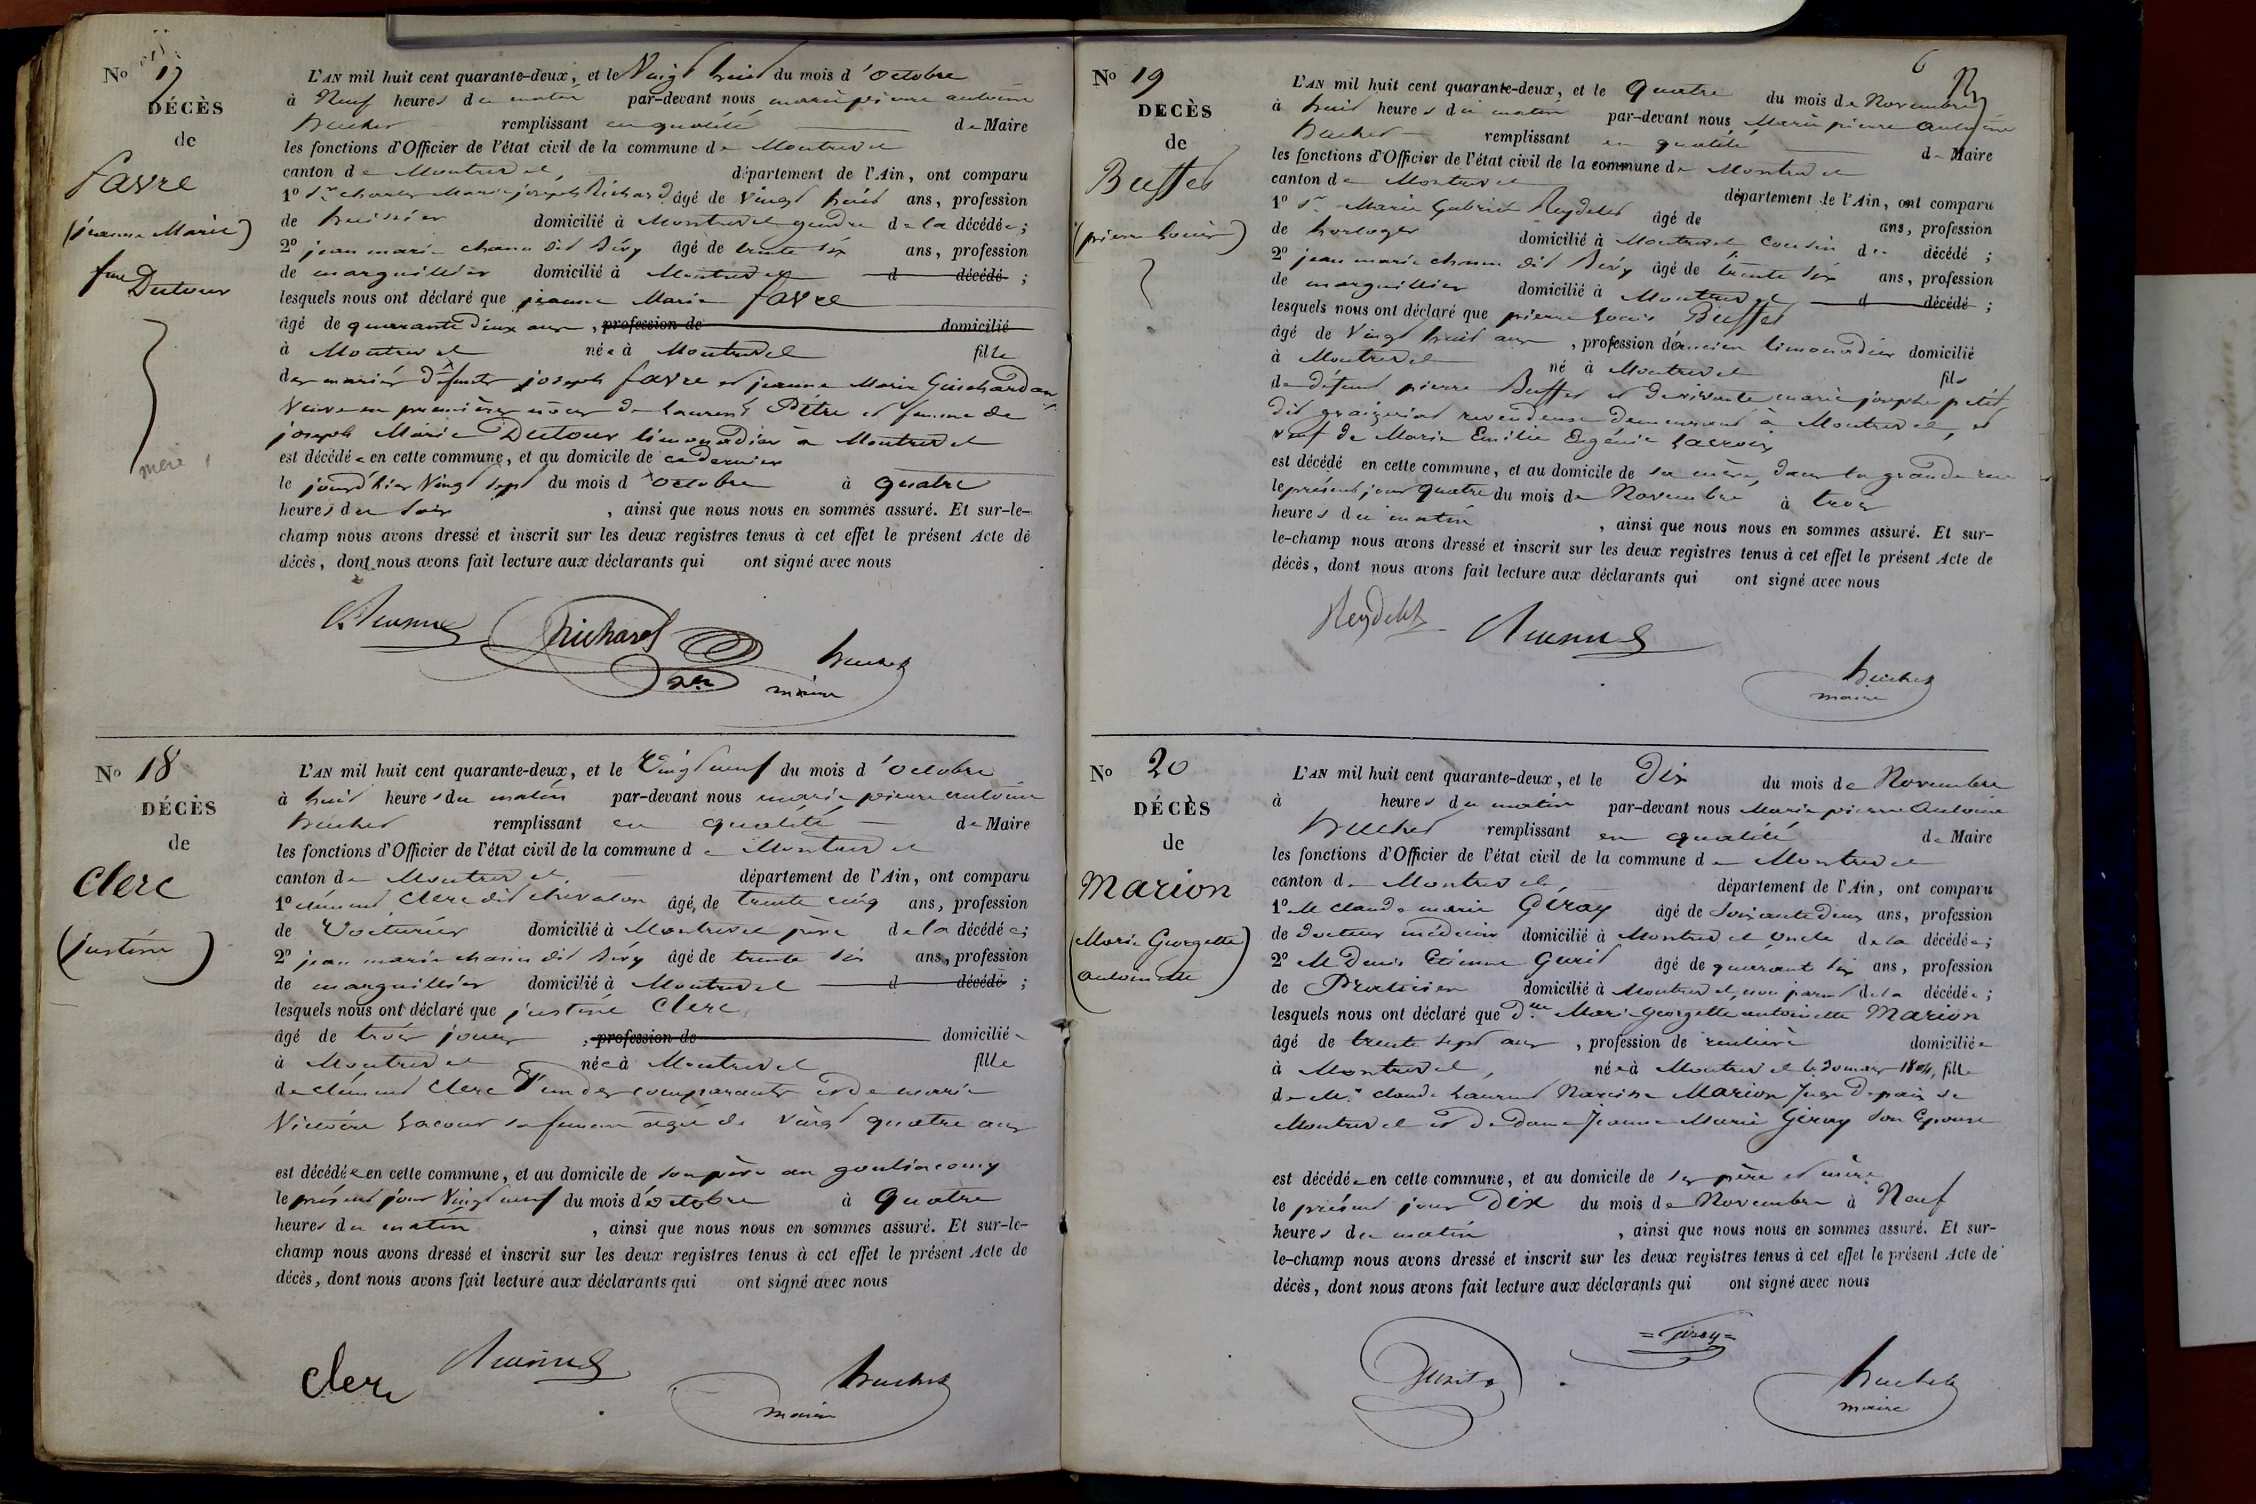 N° 17
DÉCÈS
de
favre
(jeanne Marie)
fme Dutour
mere
L'AN mil huit cent quarante-deux, et le Vingt huit du mois d'octobre
à Neuf heures du matin par-devant nous marie pierre antoine
huchet remplissant en qualité de Maire
les fonctions d'Officier de l'état civil de la commune de Montrevel
canton de Montrevel département de l'Ain, ont comparu
1° Sr charles Marie joseph Richard âgé de Vingt huit ans, profession
de huissier domicilié à Montrevel gendre de la décédée;
2° jean marie chanu dit Sévy âgé de trente six ans, profession
de marguillier domicilié à Montrevel d décédé ;
lesquels nous ont déclaré que jeanne Marie favre
âgé de quarante deux ans, profession de domicilié
à Montrevel née à Montrevel fille
des mariés défunts joseph favre et jeanne Marie Guichardan
Veuve en premières noces de Laurent Pêtre et femme de
joseph Marie Dutour limonadier à Montrevel
est décédée en cette commune, et au domicile de ce dernier
le jourd'hier Vingt sept du mois d'octobre à quatre
heures du soir , ainsi que nous nous en sommes assuré. Et sur-le-
champ nous avons dressé et inscrit sur les deux registres tenus à cet effet le présent Acte de
décès, dont nous avons fait lecture aux déclarants qui ont signé avec nous
Richard
huchet
maire
N° 18
DÉCÈS
de
Clerc
(justine)
L'AN mil huit cent quarante-deux, et le Vingt neuf du mois d'octobre
à huit heures du matin par-devant nous marie pierre antoine
huchet remplissant en qualité de Maire
les fonctions d'Officier de l'état civil de la commune de Montrevel
canton de Montrevel département de l'Ain, ont comparu
1° clément Clerc dit chivaton âgé de trente cinq ans, profession
de Voiturier domicilié à Montrevel père de la décédée;
2° jean marie chanu dit Sévy âgé de trente six ans, profession
de marguillier domicilié à Montrevel d décédé ;
lesquels nous ont déclaré que justine Clerc
âgé de trois jours , profession de domiciliée
à Montrevel née à Montrevel fille
de clément Clerc l'un des comparants et de marie
Victoire Lacour sa femme agée de vingt quatre ans
est décédée en cette commune, et au domicile de son père au
le présent jour Vingt neuf du mois d'octobre à quatre
heures du matin , ainsi que nous nous en sommes assuré. Et sur-le-
champ nous avons dressé et inscrit sur les deux registres tenus à cet effet le présent Acte de
décès, dont nous avons fait lecture aux déclarants qui ont signé avec nous
Clerc
huchet
maire
6
N° 19
DECÈS
de
Buffet
(pierre Louis)
L'AN mil huit cent quarante-deux, et le quatre du mois de Novembre
à huit heures du matin par-devant nous Marie pierre antoine
huchet remplissant en qualité de Maire
les fonctions d'Officier de l'état civil de la commune de Montrevel
canton de Montrevel département de l'Ain, ont comparu
1° Sr Marie Gabriel Reydelet âgé de ans, profession
de horloger domicilié à Montrevel cousin du décédé ;
2° jean marie chanu dit Sévy âgé de trente six ans, profession
de marguillier domicilié à Montrevel d décédé ;
lesquels nous ont déclaré que pierre Louis Buffet
âgé de Vingt huit ans , profession d'ancien limonadier domicilié
à Montrevel né à Montrevel fils
de défunt pierre Buffet et de vivante marie josephe petit
dit revendeuse demeurant à Montrevel, et
veuf de Marie Emilie Eugénie Lacroix
est décédé en cette commune, et au domicile de sa mère, dans la grande rue
le présent jour quatre du mois de Novembre à trois
heures du matin , ainsi que nous nous en sommes assuré. Et sur-
le-champ nous avons dressé et inscrit sur les deux registres tenus à cet effet le présent Acte de
décès, dont nous avons fait lecture aux déclarants qui ont signé avec nous
Reydelet
huchet
maire
N° 20
DÉCÈS
de
Marion
(Marie Georgette
antoinette)
L'AN mil huit cent quarante-deux, et le Dix du mois de Novembre
à heures du matin par-devant nous Marie pierre Antoine
huchet remplissant en qualité de Maire
les fonctions d'Officier de l'état civil de la commune de Montrevel
canton de Montrevel département de l'Ain, ont comparu
1° M claude marie Giray âgé de Soixante deux ans, profession
de docteur médecin domicilié à Montrevel oncle de la décédée;
2° M Denis Etienne Gurit âgé de quarante six ans, profession
de Praticien domicilié à Montrevel, non parent de la décédée;
lesquels nous ont déclaré que Dlle Marie georgette antoinette Marion
âgé de trente sept ans , profession de rentière domiciliée
à Montrevel, née à Montrevel le 30 mars 1804, fille
de Mr claude Laurent Narcisse Marion Juge de paix de
Montrevel et de dame Jeanne Marie Giray son Epouse
est décédée en cette commune, et au domicile de ses père et mère
le présent jour Dix du mois de Novembre à Neuf
heures du matin , ainsi que nous nous en sommes assuré. Et sur-
le-champ nous avons dressé et inscrit sur les deux registres tenus à cet effet le présent Acte de
décès, dont nous avons fait lecture aux déclarants qui ont signé avec nous
Giray
Gurit
huchet
maire